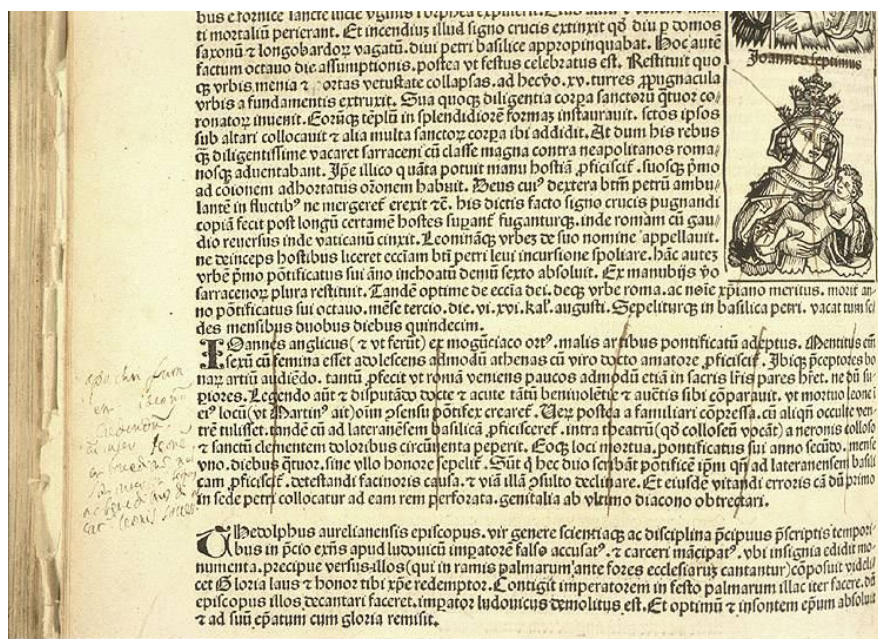 ti mortaliũ perierant. Et incendiũ illud signo crucis extinxit qđ diu ꝑ domos
saxonũ ⁊ longobardoꝝ vagatũ. diui petri basilice appropinquabat. Hoc autẽ
factum octauo die assumptionis. postea vt festus celebratus est. Restituit quo
Joannes septimus
vrbis a fundamentis extruxit. Sua quoqꝫ diligentia corꝑa sanctorũ q̃tuor co-
ronatoꝝ inuenit. Eorũqꝫ tẽplũ in splendidiorẽ formaꝫ instaurauit. sctõs ipsos
sub altari collocauit ⁊ alia multa sanctoꝝ corꝑa ibi addidit. At dum his rebus
qꝫ diligentissime vacaret sarraceni cũ classe magna contra neapolitanos roma-
nosqꝫ aduentabant. Ip̃e illico quãta potuit manu hostiã ꝓficiscit᷑. suosqꝫ p̃mo
ad cõionem adhortatus orõnem habuit. Deus cui⁹ dextera btm̃ petrũ ambu
lantẽ in fluctib⁹ ne mergeret᷑ erexit ⁊c̃. his dictis facto signo crucis pugnandi
copiã fecit post longũ certamẽ hostes suꝑant᷑ fuganturqꝫ. inde romam cũ gau-
dio reuersus inde vaticanũ cinxit. Leoninãqꝫ vrbeꝫ de suo nomine appellauit.
ne deinceps hostibus liceret ecc̃iam bt̃i petri leui incursione spoliare. hãc auteꝫ
vrbẽ p̃mo põtificatus sui ãno inchoatũ demũ sexto absoluit. Ex manubijs ṽo
sarracenoꝝ plura restituit. Tandẽ optime de ecc̃ia dei. deqꝫ vrbe roma. ac nõie xp̃iano meritus. morit᷑ an-
no põtificatus sui octauo. mẽse tercio. die. vi. xvi. kal᷒. augusti. Sepeliturqꝫ in basilica petri. vacat tum se
des mensibus duobus diebus quindecim.
IOannes anglicus (⁊ vt ferũt) ex mogũciaco ort⁹. malis artibus pontificatũ adeptus. Mentitus em̃
sexũ cũ femina esset adolescens admodũ athenas cũ viro docto amatore ꝓficiscit᷑. Ibiqꝫ p̃ceptores bo
naꝝ artiũ audiẽdo. tantũ ꝓfecit vt romã veniens paucos admodũ etiã in sacris lr̃is pares hr̃et. ne dũ su
ꝑiores. Legendo aũt ⁊ disputãdo docte ⁊ acute tãtũ beniuolẽtie ⁊ auctẽtis sibi cõparauit. vt mortuo leone i
ei⁹ locũ (vt Martin⁹ ait) oĩm ↄ̃sensu põtifex crearet᷑. Ueꝝ postea a familiari cõpressa. cũ aliqñ occulte ven-
trẽ tulisset. tandẽ cũ ad lateranẽsem basilicã ꝓficisceret᷑. intra theatrũ (qđ collosseũ vocãt) a neronis colloso
⁊ sanctũ clementem doloribus circũuenta peperit. Eoqꝫ loci mortua. pontificatus sui anno secũdo. mense
vno. diebus q̃tuor. sine vllo honore sepelit᷑. Sũt q̃ hec duo scribãt põtificẽ ip̃m qñ ad lateranensem basili
cam ꝓficiscit᷑. detestandi facinoris causa. ⁊ viã illã ↄ̃sulto declinare. Et eiusdẽ vitandi erroris cã dũ primo
in sede petri collocatur ad eam rem perforata. genitalia ab vltimo diacono obtrectari.
THedolphus aurelianensis episcopus. vir genere scientiaqꝫ ac disciplina p̃cipuus p̃scriptis tempori-
bus in p̃cio exñs apud ludouicũ imꝑatorẽ falso accusat⁹. ⁊ carceri mãcipat⁹. vbi insignia edidit mo-
numenta. precipue versus illos (qui in ramis palmarum ante fores ecclesiarũ cantantur) cõposuit videli
cet Gloria laus ⁊ honor tibi xp̃e redemptor. Contigit imperatorem in festo palmarum illac iter facere. dũ
episcopus illos decantari faceret. imꝑator ludouicus demolitus est. Et optimũ ⁊ insontem ep̃um absoluit
⁊ ad suũ ep̃atum cum gloria remisit.